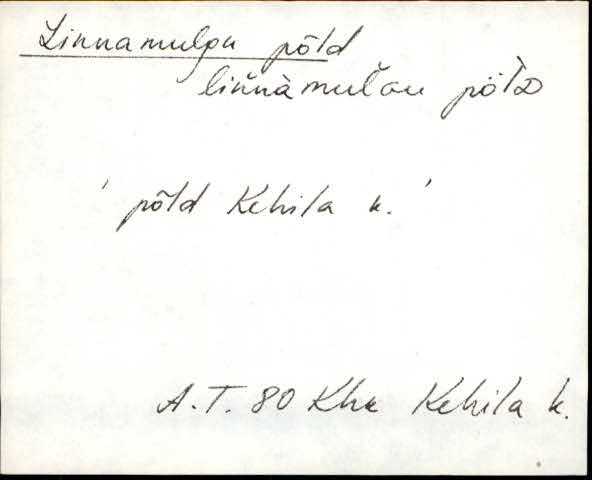 Linnamulgu põld
liňnàmuľGu põl̀D
' põld Kehila k. '
A.T. 80 Khk Kehila k.